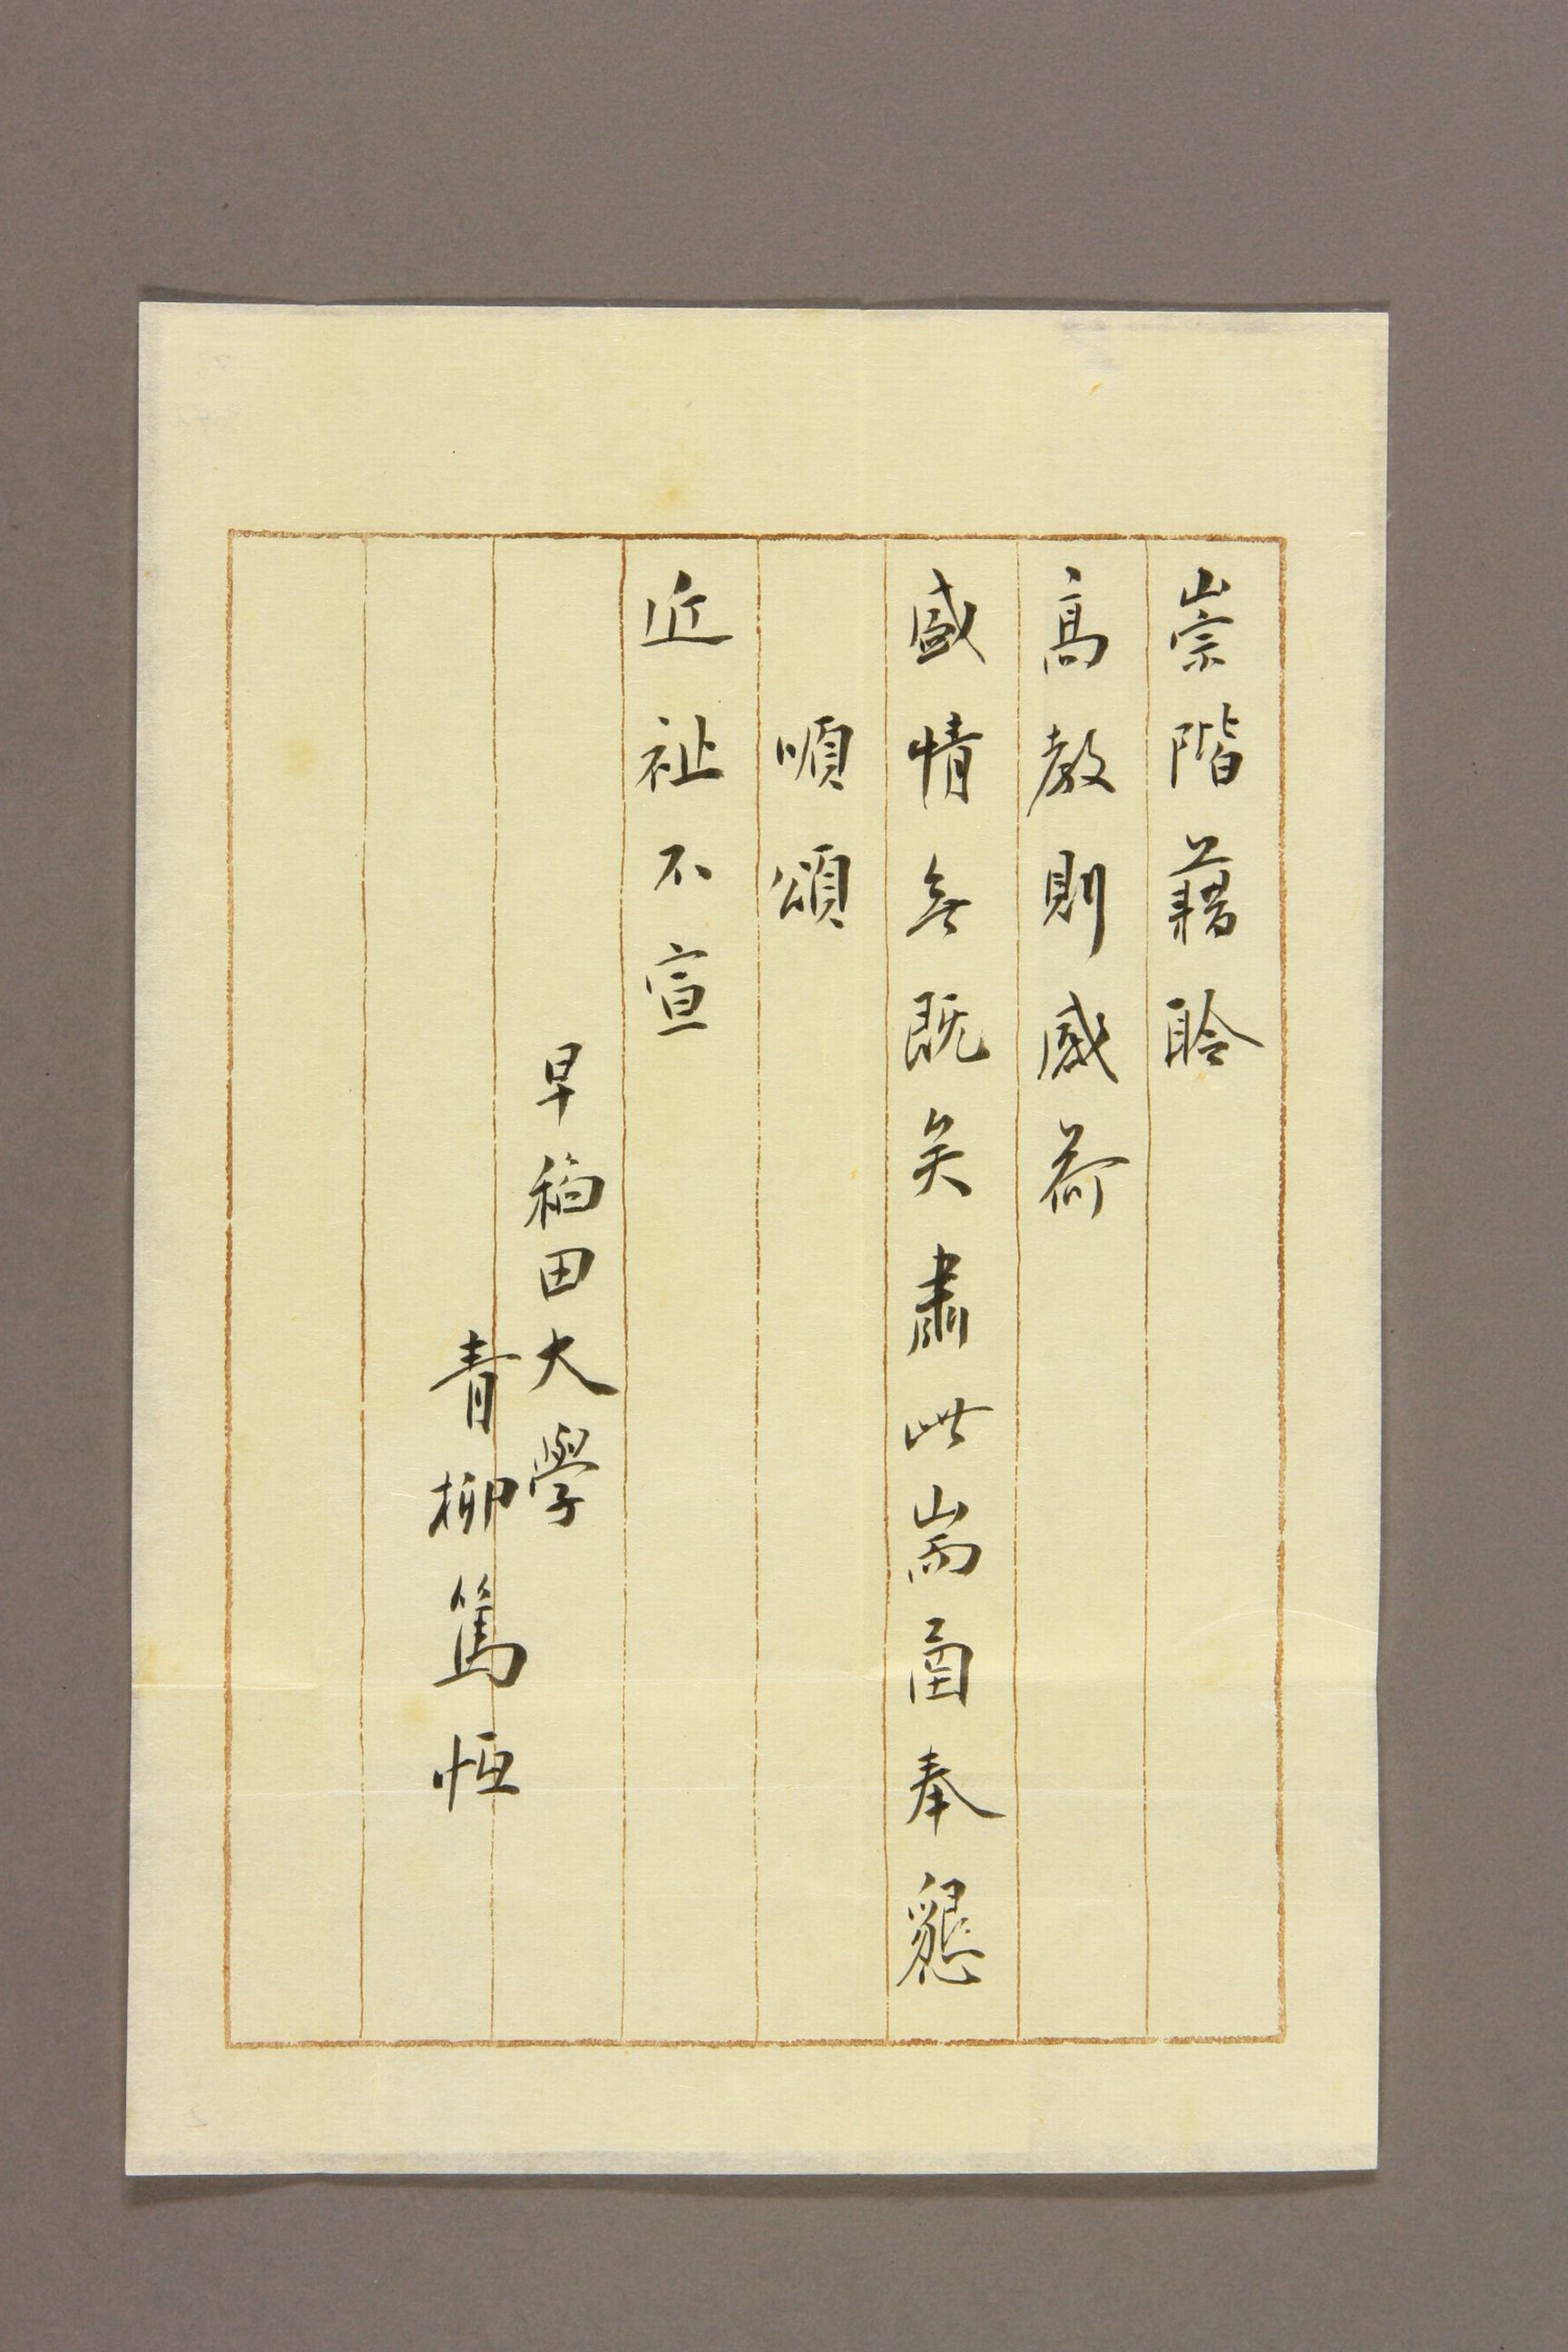 崇階藉聆
高教則感荷
盛情無既矣肅此耑函奉懇
順頌
近祉不宣
早稲田大學
青柳篤恒